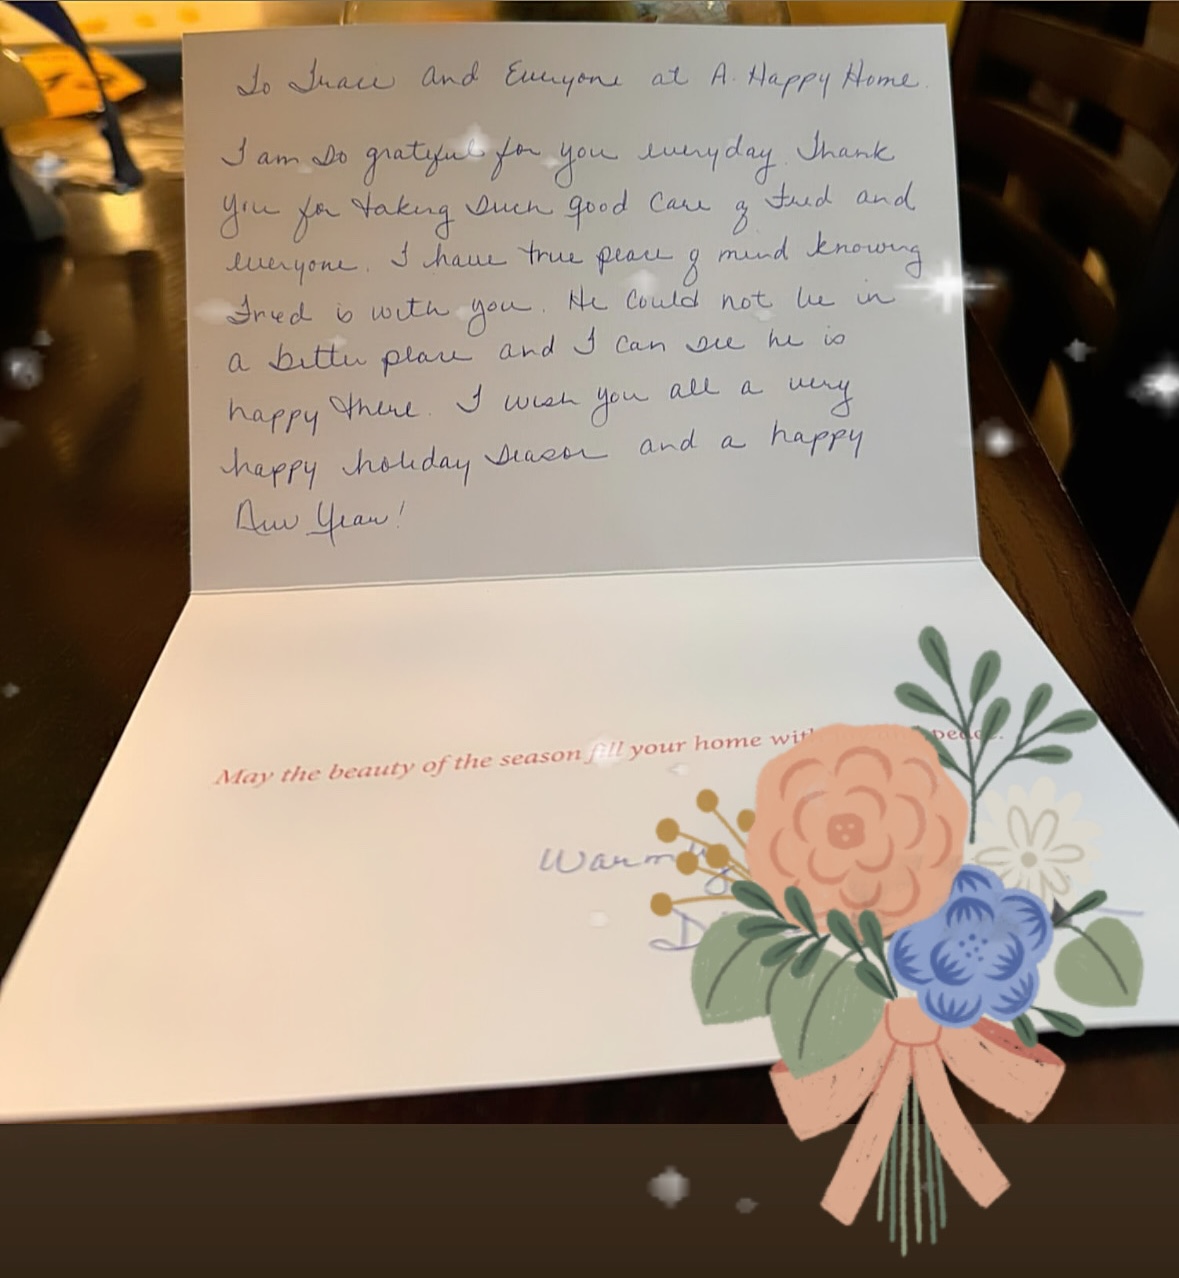 To Trace and Everyone at A Happy Home.
I am so grateful for you everyday. Thank
you for taking such good care of Fred and
everyone. I have true peace of mind knowing
Fred is with you. He could not be in
a better place and I can see he is
happy there. I wish you all a very
happy holiday season and a happy
New Year!
May the beauty of the season fill your home with peace.
Warmly